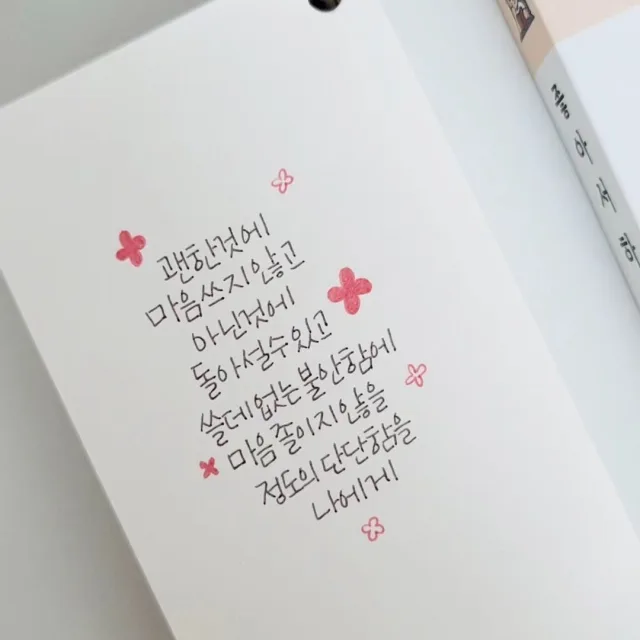 괜한것에
마음쓰지않고
아닌것에
돌아설수있고
쓸데없는불안함에
마음졸이지않을
정도의단단함을
나에게